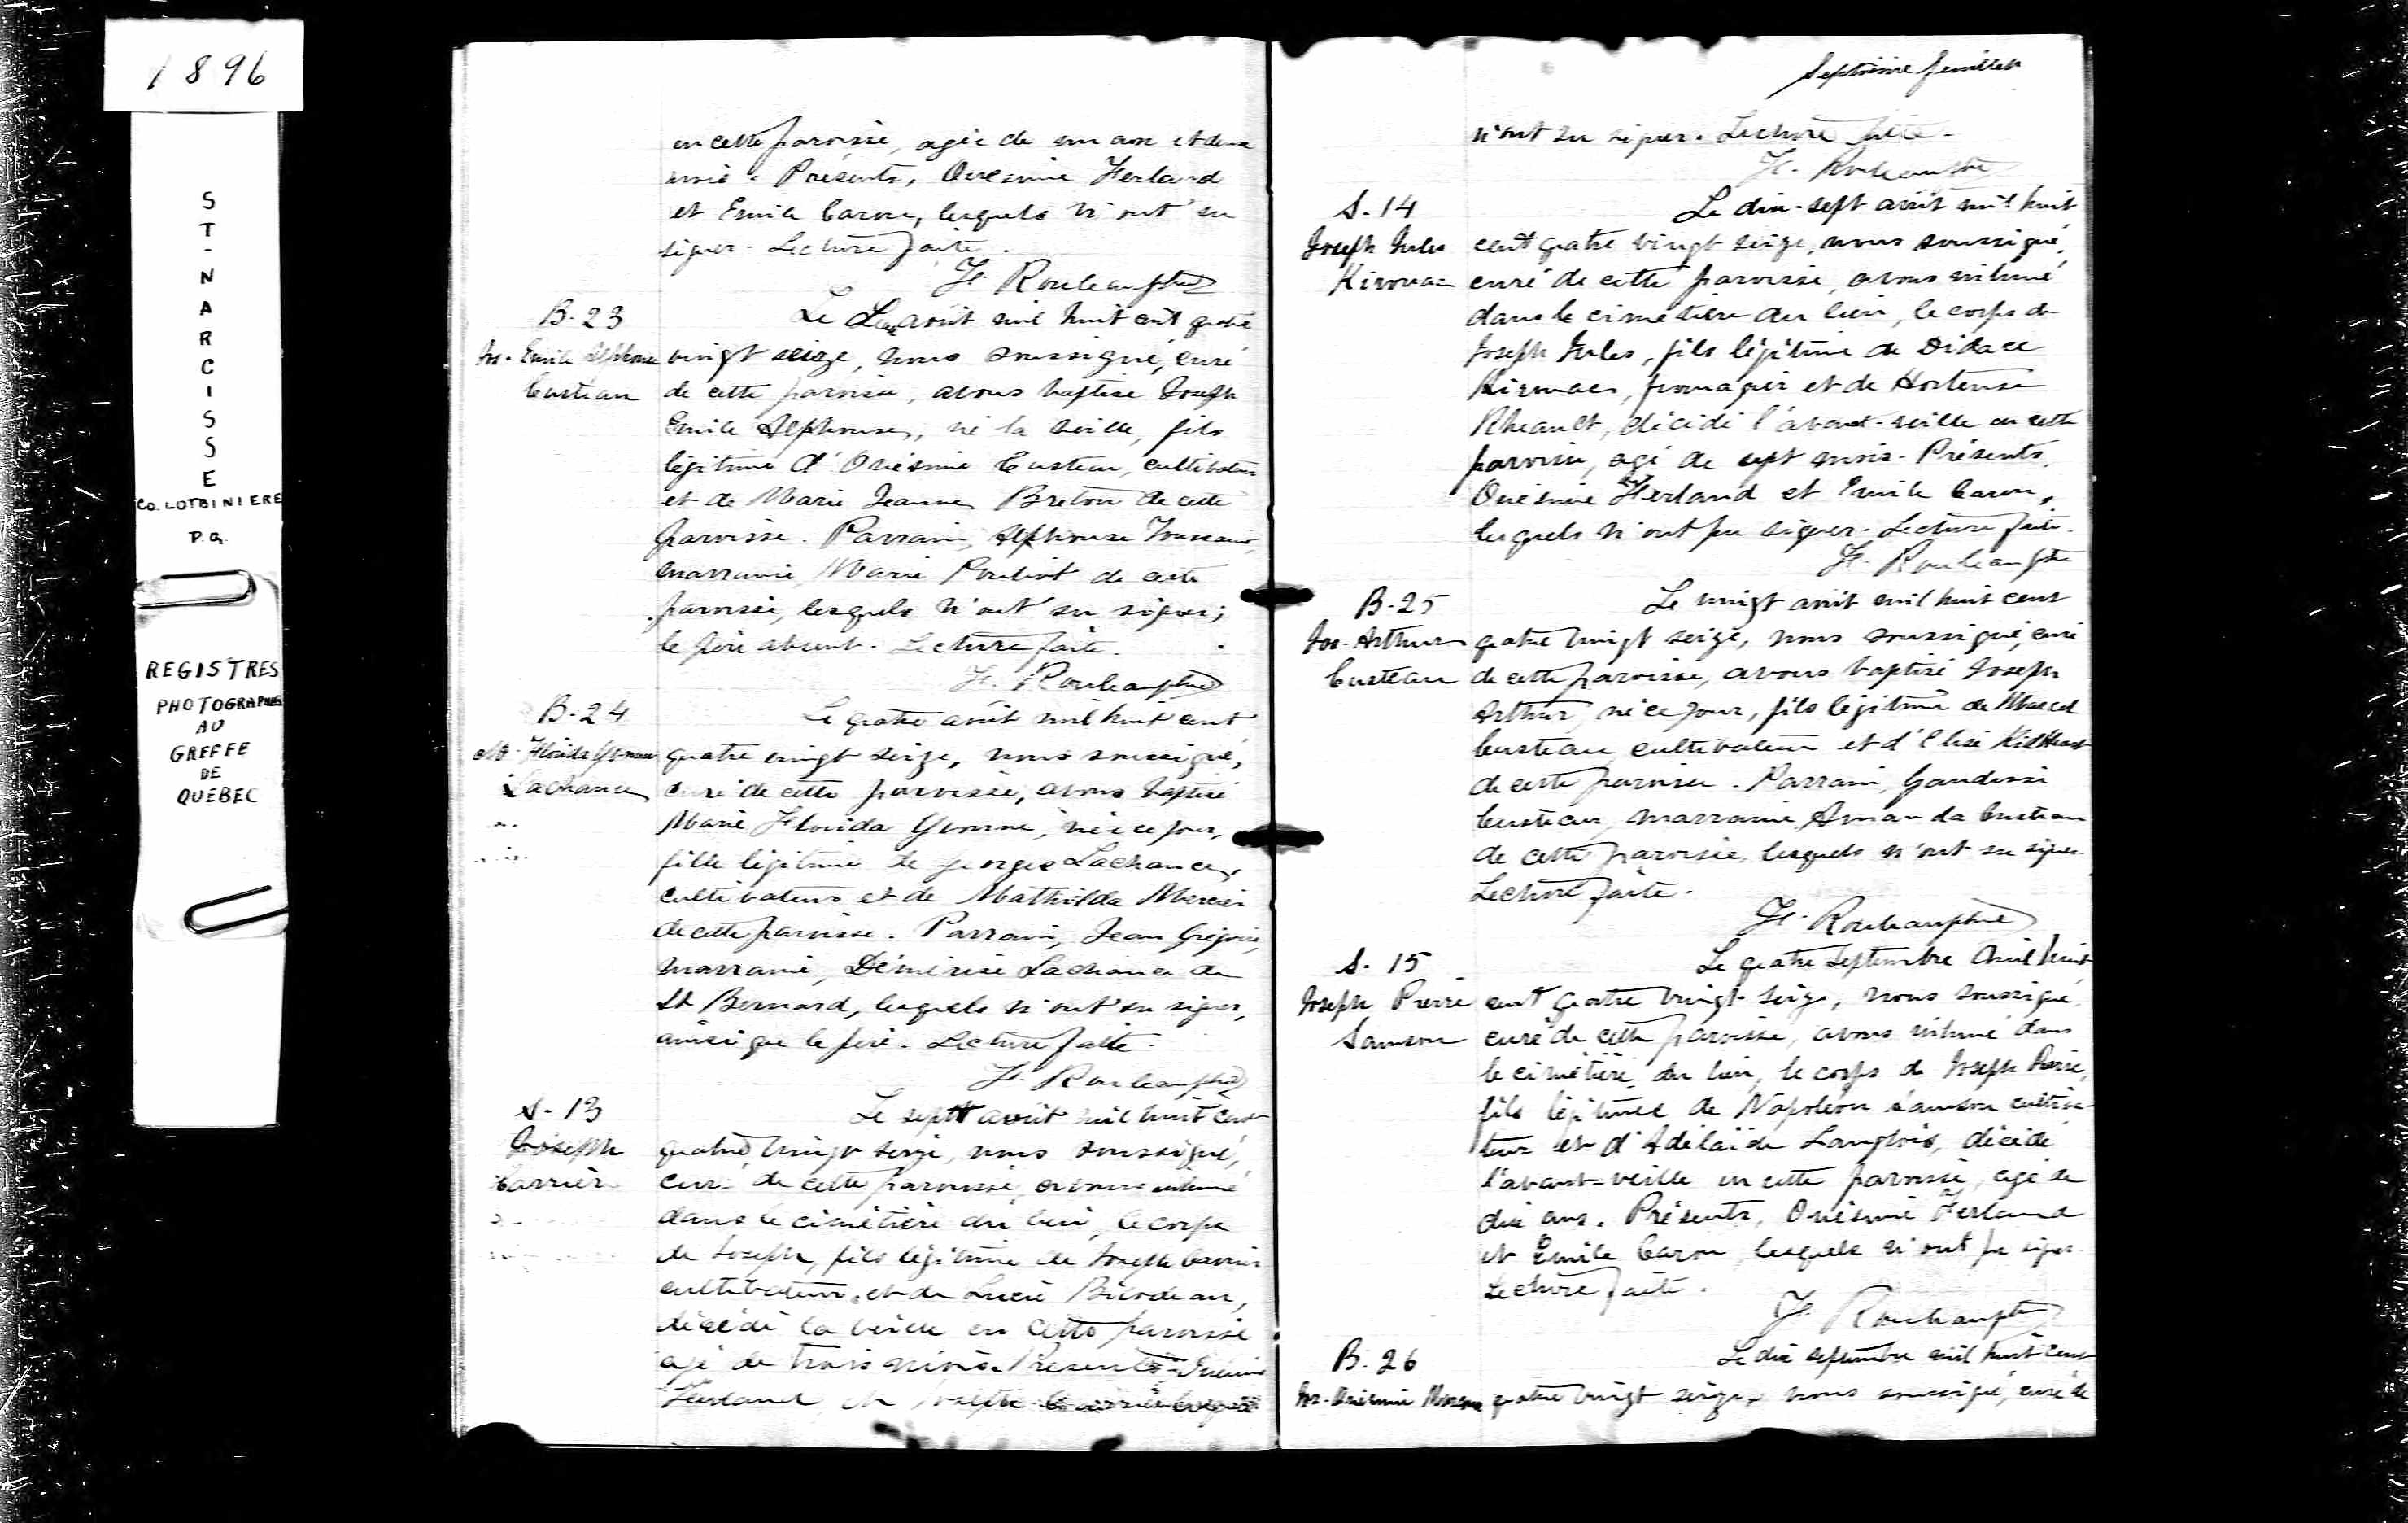 1896
ST-NARCISSE
CO. LOTBINIERE
P.Q.
REGISTRES
PHOTOGRAPHIES
AU
GREFFE
DE
QUEBEC
en cette paroisse, agée de un an et deux
mois. Présents, Onésime Ferland
et Emile Caron, lesquels n'ont su
signer. Lecture faite.
F. Rouleau ptre
B-23
Jos. Emile Alphonse
Custeau
Le août mil huit cent quatre
vingt seize, nous soussigné, curé
de cette paroisse, avons baptisé Joseph
Emile Alphonse, né la veille, fils
légitime d'Onésime Custeau, cultivateur
et de Marie Jeanne Breton de cette
paroisse. Parrain, Alphonse
marraine, Marie Pouliot de cette
paroisse, lesquels n'ont su signer;
le père absent. Lecture faite.
F. Rouleau ptre
B-24
M. Florida Yvonne
Lachance
Le quatre août mil huit cent
quatre vingt seize, nous soussigné,
curé de cette paroisse, avons baptisé
Marie Florida Yvonne, née ce jour,
fille légitime de Georges Lachance,
cultivateur et de Mathilda Mercier
de cette paroisse. Parrain, Jean Grégoire,
marraine, Démerise Lachance de
St Bernard, lesquels n'ont su signer,
ainsi que le père. Lecture faite.
F. Rouleau ptre
S-13
Joseph
Carrier
Le sept août mil huit cent
quatre vingt seize, nous soussigné,
curé de cette paroisse, avons inhumé
dans le cimetière du lieu, le corps
de Joseph, fils légitime de Joseph Carrier
cultivateur, et de Lucie Bilodeau,
décédé la veille en cette paroisse
agé de trois mois. Présents, Onésime
Ferland et
Septième feuillet
n'ont su signer. Lecture faite.
F. Rouleau ptre
S-14
Joseph Jules
Kirouac
Le dix-sept août mil huit
cent quatre vingt seize, nous soussigné,
curé de cette paroisse, avons inhumé
dans le cimetière du lieu, le corps de
Joseph Jules, fils légitime de Didace
Kirouac, fromager et de Hortense
Rheault, décédé l'avant-veille en cette
paroisse, agé de sept mois. Présents,
Onésime Ferland et Emile Caron,
lesquels n'ont pu signer. Lecture faite.
F. Rouleau ptre
B-25
Jos. Arthur
Custeau
Le vingt août mil huit cent
quatre vingt seize, nous soussigné, curé
de cette paroisse, avons baptisé Joseph
Arthur, né ce jour, fils légitime de Marcel
Custeau cultivateur et d'Elise
de cette paroisse. Parrain, Gaudiose
Custeau, marraine, Amanda Custeau
de cette paroisse, lesquels n'ont su signer.
Lecture faite.
F. Rouleau ptre
S-15
Joseph Pierre
Samson
Le quatre septembre mil huit
cent quatre vingt seize, nous soussigné,
curé de cette paroisse, avons inhumé dans
le cimetière du lieu, le corps de Joseph Pierre,
fils légitime de Napoléon Samson cultiva-
teur et d'Adélaïde Langlois, décédé
l'avant-veille en cette paroisse, agé de
dix ans. Présents, Onésime Ferland
et Emile Caron, lesquels n'ont pu signer.
Lecture faite.
F. Rouleau ptre
B-26
Jos. Onésime
Le dix septembre mil huit cent
quatre vingt seize, nous soussigné, curé de